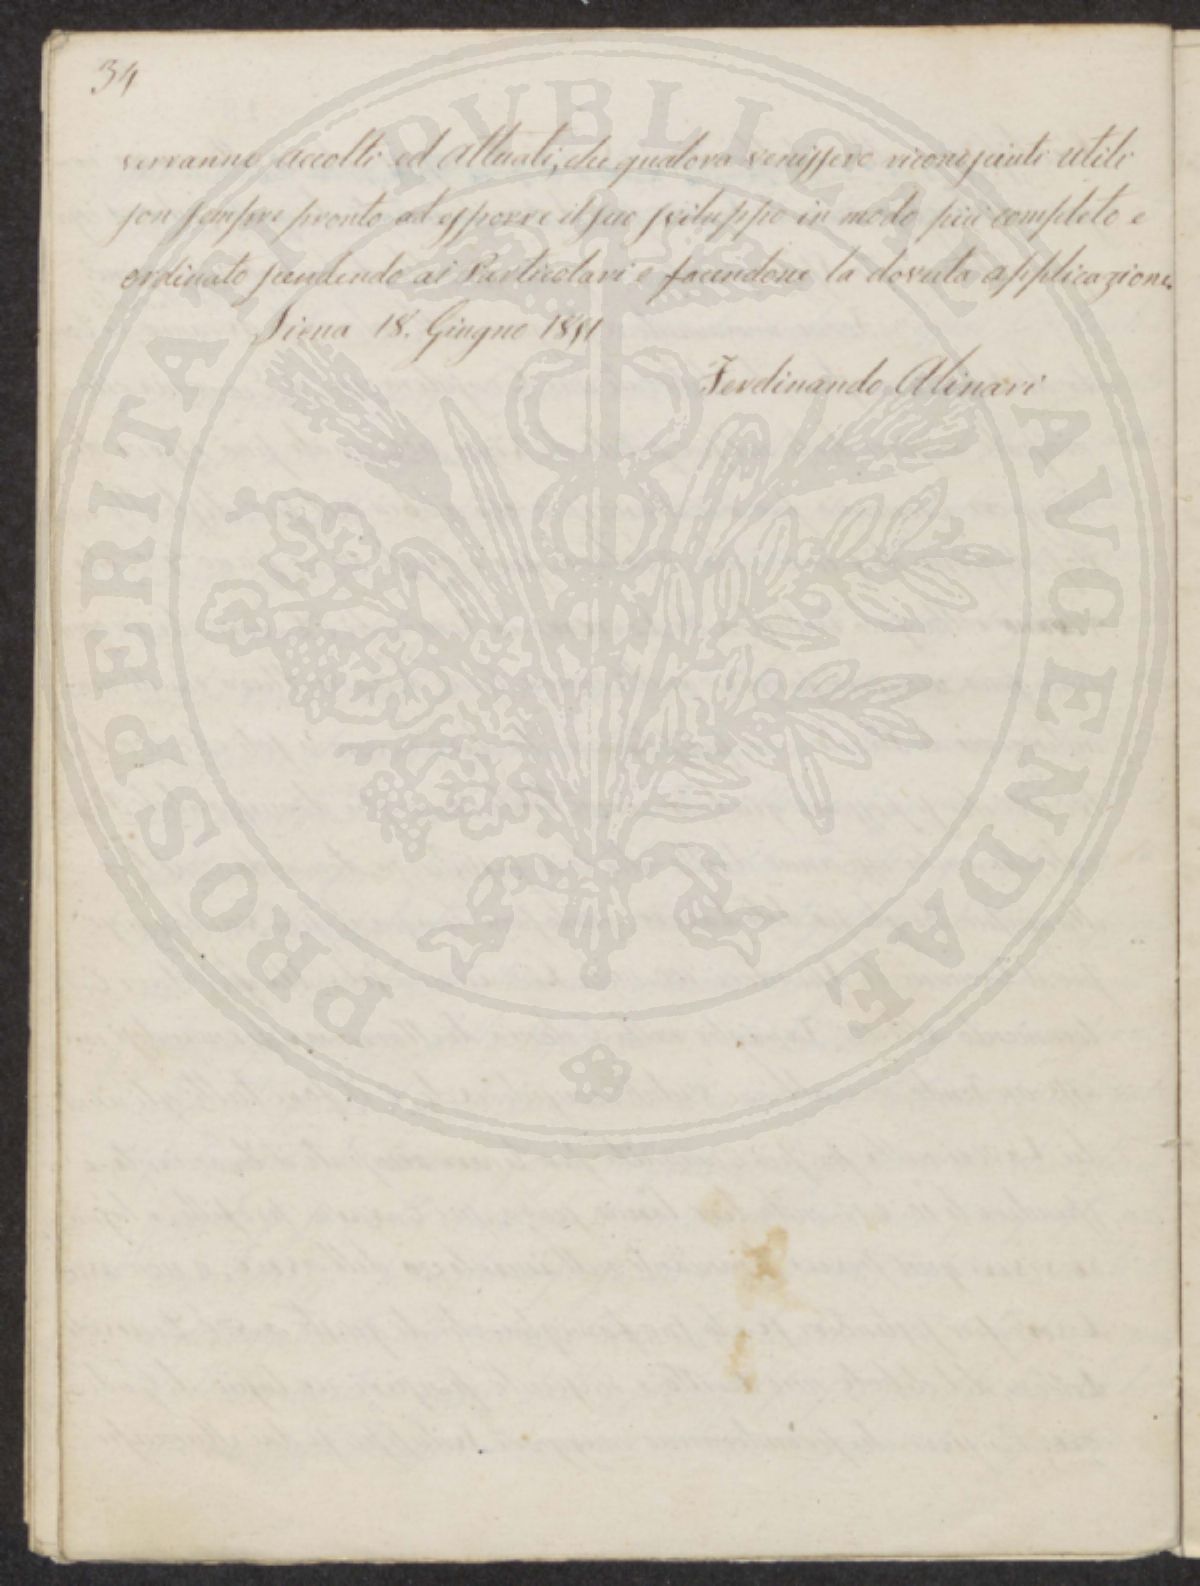 34
verranno accolti ed attuati, che qualora venissero riconosciuti utili
son sempre pronto ad esporre il suo sviluppo in modo più completo e
ordinato scendendo ai Particolari e facendone la dovuta applicazione.
Siena 18. Giugno
Ferdinando Alinari
PROSPERITATI PUBLICAE AVGENDAE